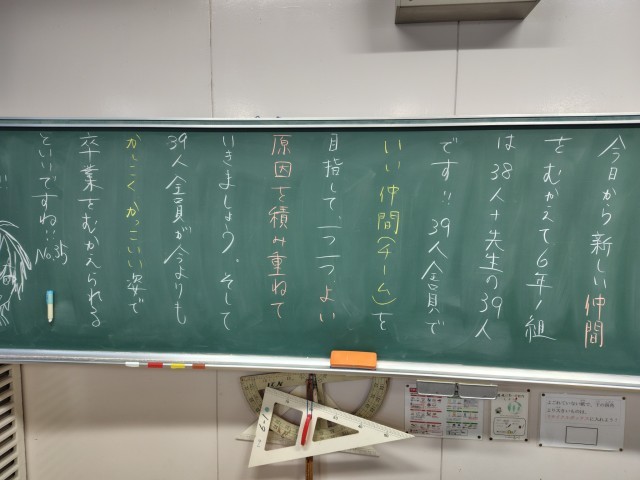 今日から新しい仲間
をむかえて6年1組
は38人+先生の39人
です!! 39人全員で
いい仲間(チーム)を
目指して、一つ一つよい
原因を積み重ねて
いきましょう。そして
39人全員が今よりも
かしこくかっこいい姿で
卒業をむかえられる
といいですね!!